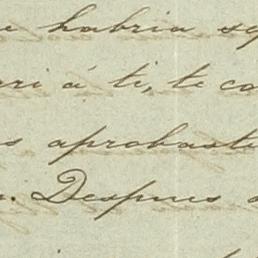 e habria se
rri á ti, te co
s aprobaste
. Despues